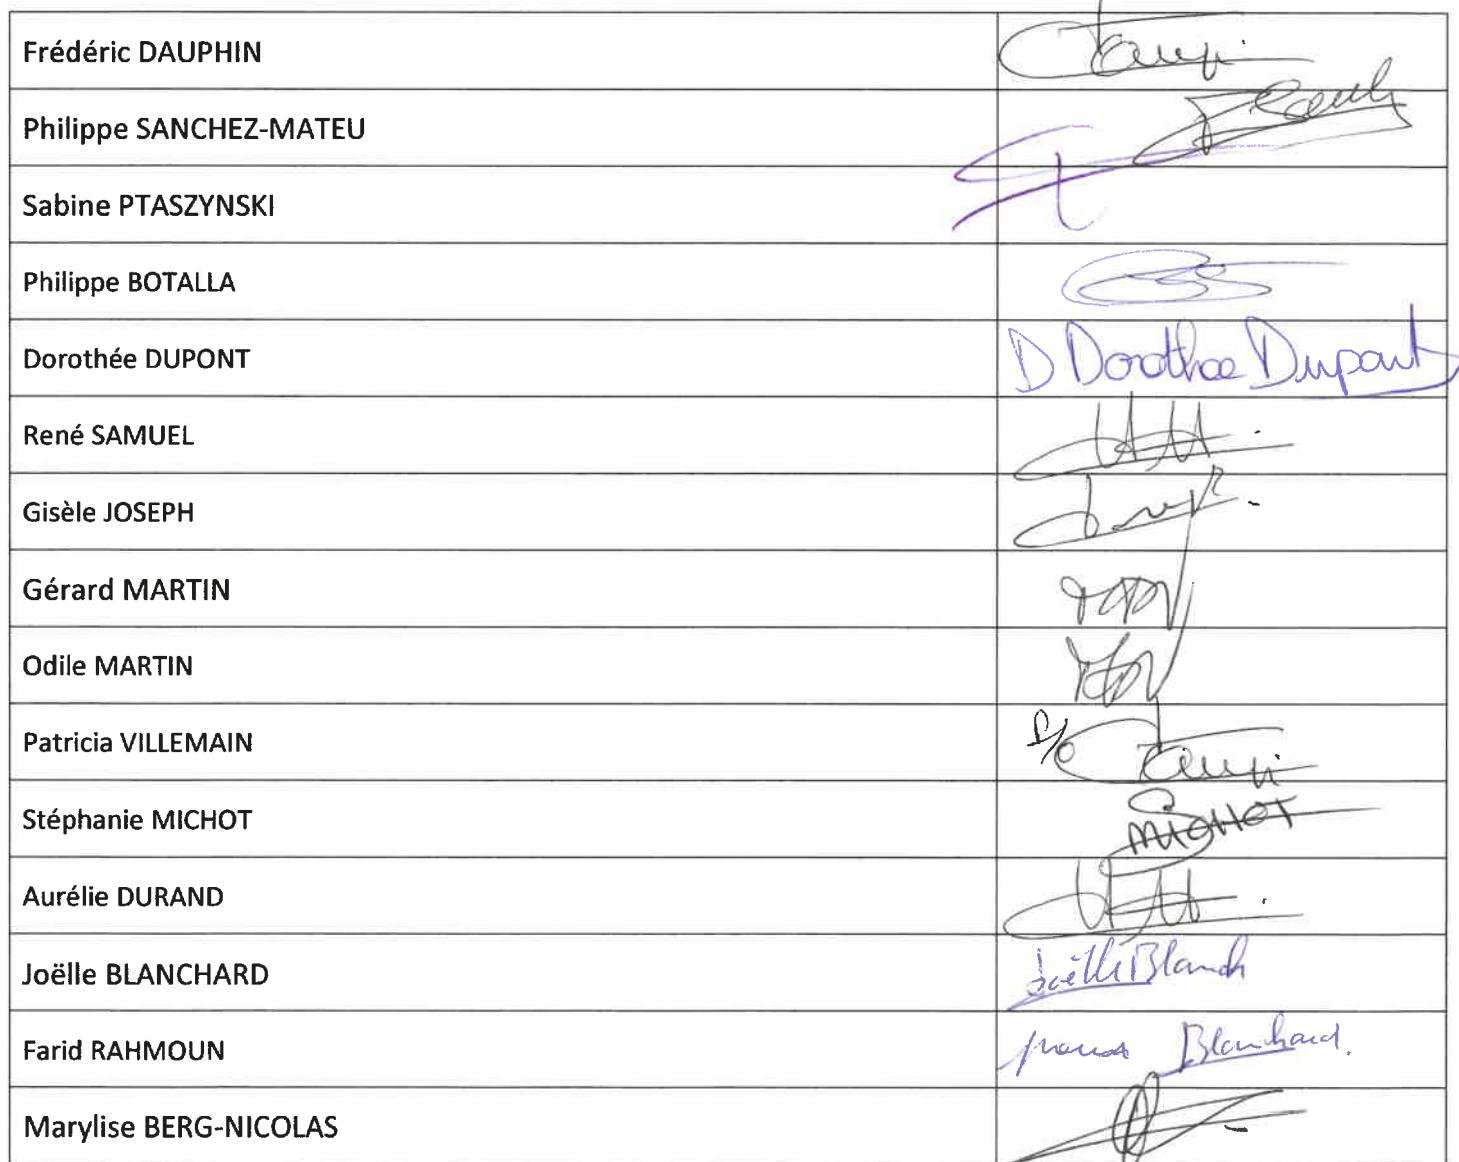 Frédéric DAUPHIN
Philippe SANCHEZ-MATEU
Sabine PTASZYNSKI
Philippe BOTALLA
Dorothée DUPONT D Dorothee Dupont
René SAMUEL
Gisèle JOSEPH
Gérard MARTIN
Odile MARTIN
Patricia VILLEMAIN
Stéphanie MICHOT MICHOT
Aurélie DURAND
Joëlle BLANCHARD
Farid RAHMOUN Blanchard.
Marylise BERG-NICOLAS